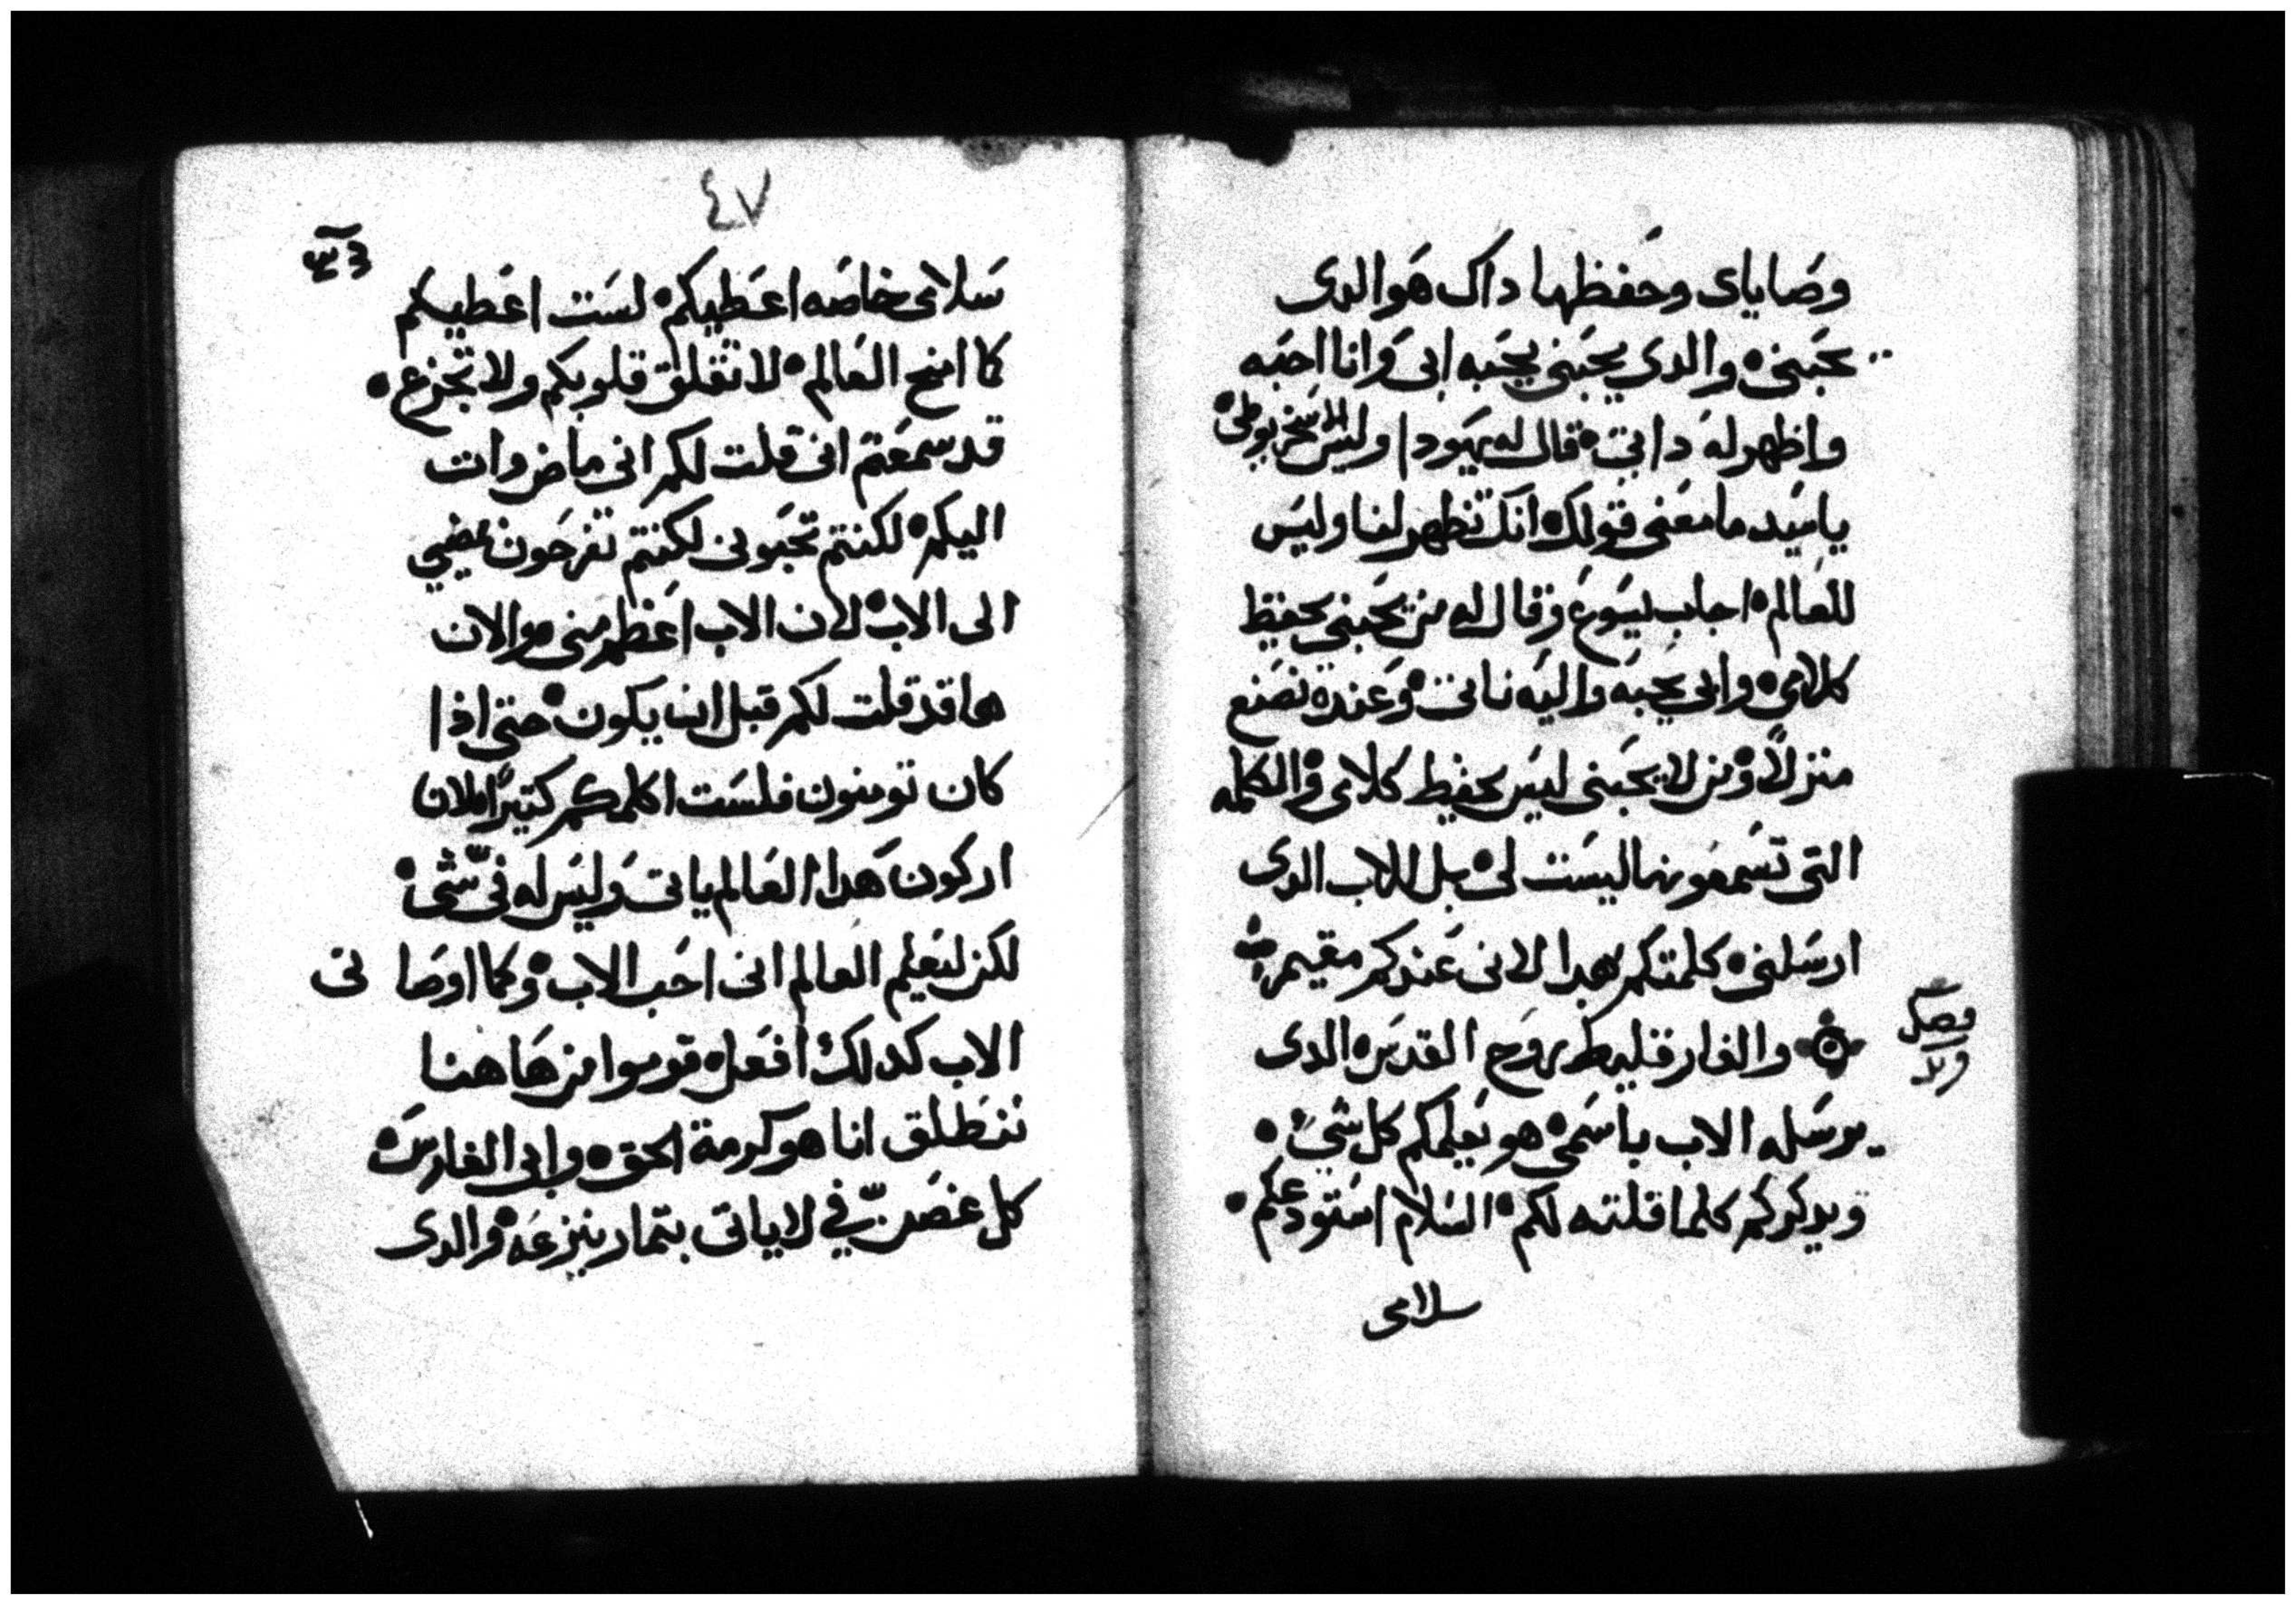 وصاياى وحفظها داك هو الدى
يحبنى والدى يحبنى يحبه ابى وانا احبه
واظهر له داتى قال له يهودا وليس الاسخريوطى
ياسيد ما معنى قولك انك تظهر لنا وليس
للعالم اجاب يسوع وقال له من يحبنى يحفيظ
كلامى وابى يحبه واليه ناتى وعنده نصنع
منزلاً ومن لا يحبنى ليس يحفيط كلامى والكلمه
التى تسمعونها ليست لى بل للاب الدى
ارسلنى كلمتكم بهدا لانى عندكم مقيم
والفارقليط روح القدس الدى
يرسله الاب باسمى هو يعلمكم كل شي
ويدكركم كلما قلته لكم السلام استودعكم
سلامى
٤٧
سلامى خاصه اعطيكم لست اعطيكم
كما امنح العالم لا تقلق قلوبكم ولا تجزع
قد سمعتم انى قلت لكم انى ماض وات
اليكم لكنتم تحبونى لكنتم تفرحون بمضيي
الى الاب لان الاب اعظم منى والان
ها قد قلت لكم قبل ان يكون حتى اذا
كان تومنون فلست اكلمكم كتيراً لان
اركون هدا العالم ياتى وليس له فيّ شى
لكن ليعلم العالم انى احب الاب وكما اوصانى
الاب كدلك افعل قوموا من هاهنا
ننطلق انا هو كرمة الحق وابى الغارس
كل غصن فيّ لا ياتى بتمار ينزعه والدى